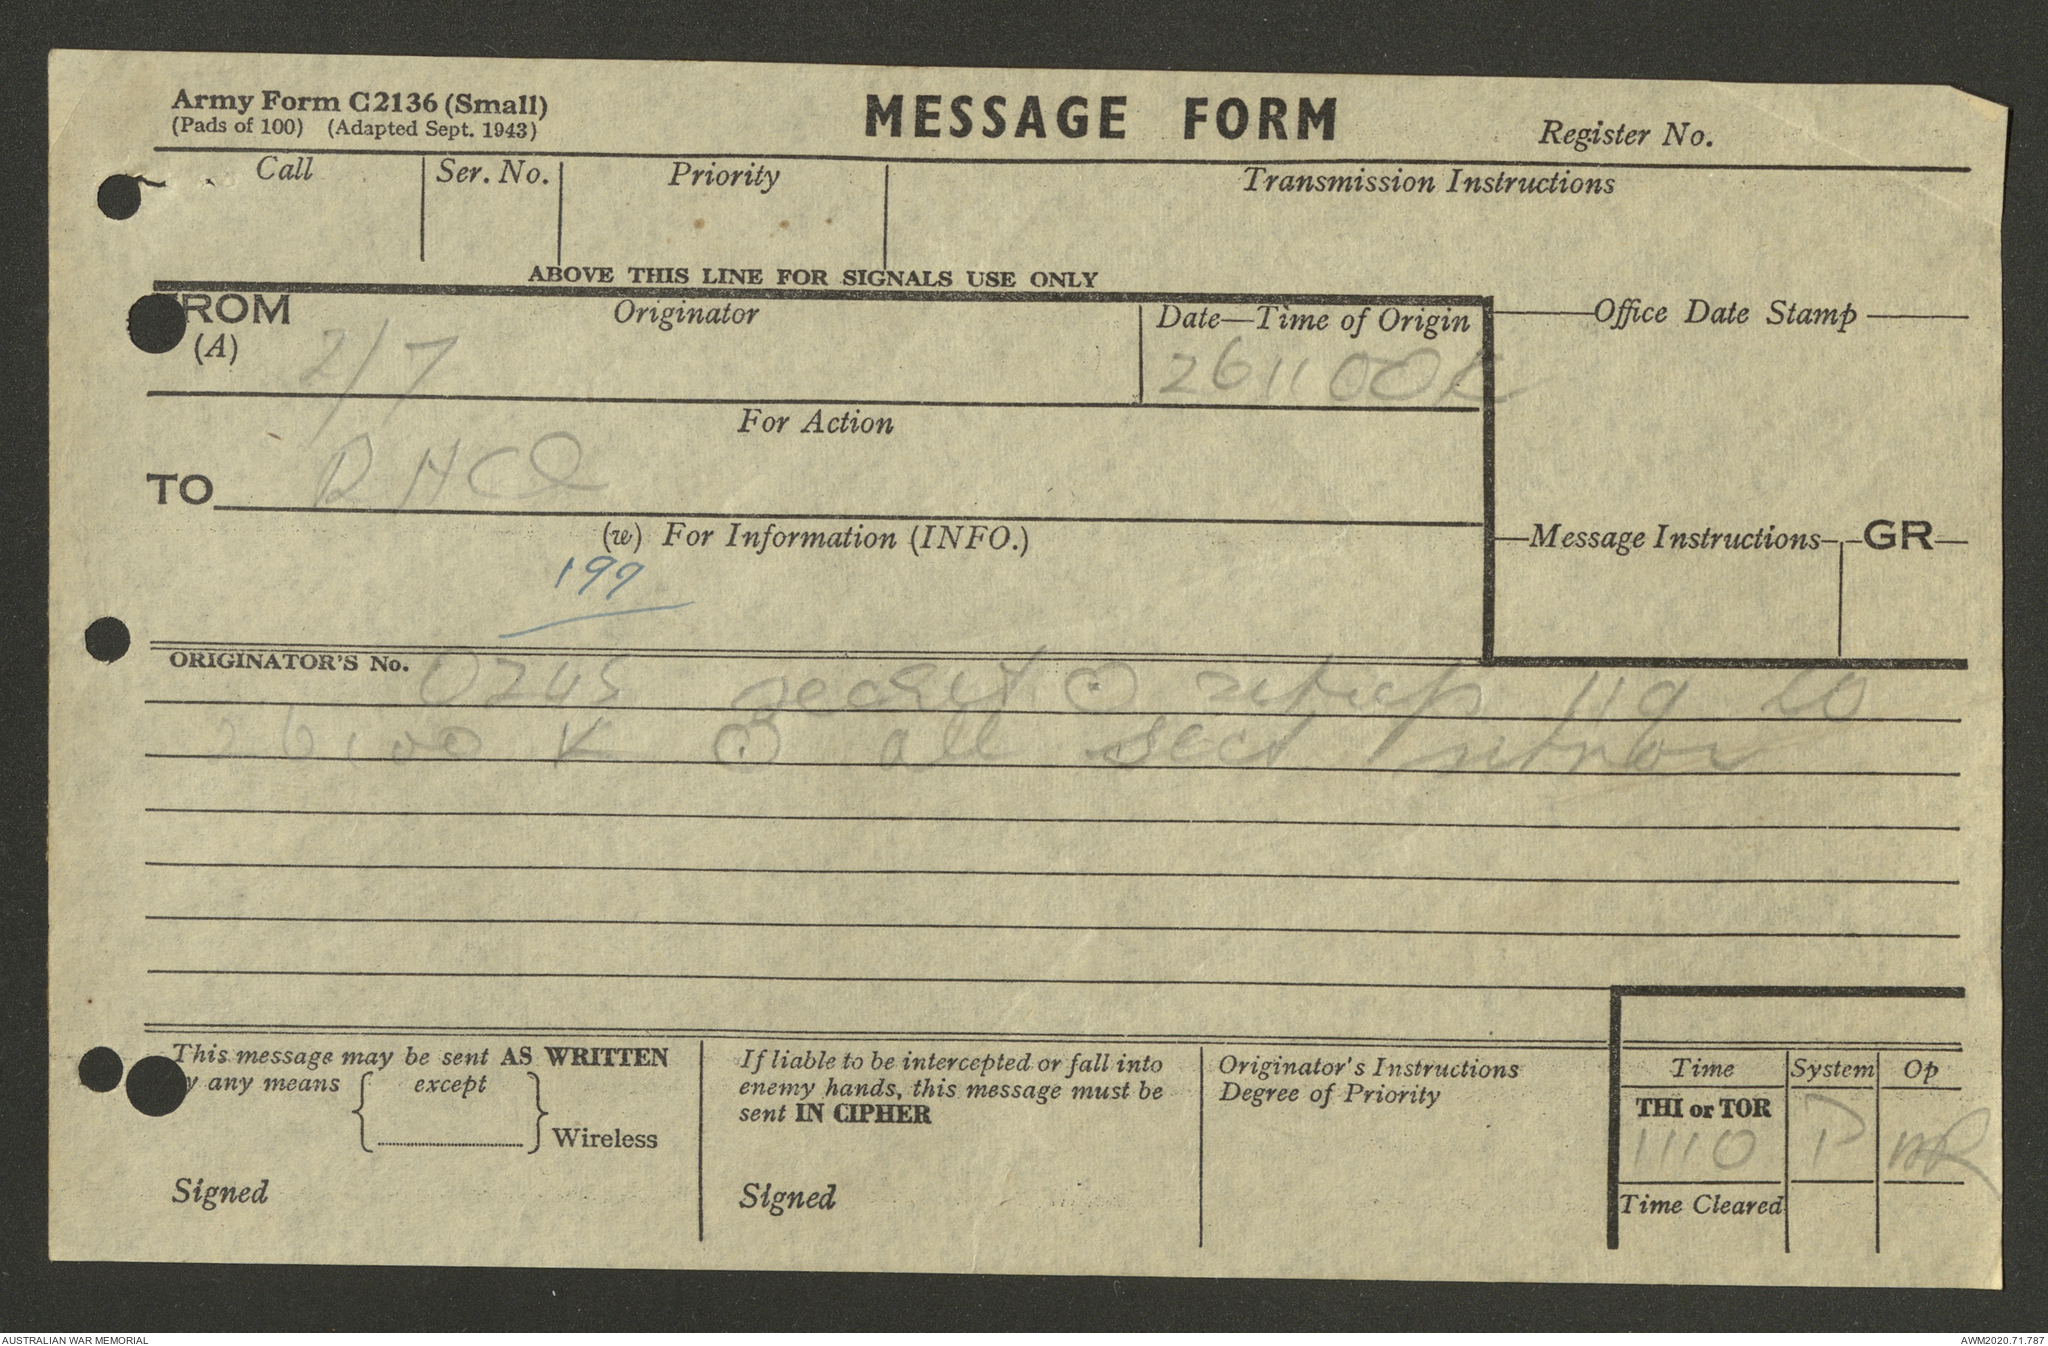 Army Form C2136 (Small)
(Pads of 100) (Adapted Sept. 1943)
MESSAGE FORM
Register No.
Call
Ser. No.
Priority
Transmission Instructions
ABOVE THIS LINE FOR SIGNALS USE ONLY
ROM
(A)
Originator
Date—Time of Origin
Office Date Stamp
2/7
261100K
For Action
TO
(w) For Information (INFO.)
Message Instructions
GR
199
ORIGINATOR'S No.
0245 secret sitrep 119
K all secs
This message may be sent AS WRITTEN
y any means { except } Wireless
Signed
If liable to be intercepted or fall into
enemy hands, this message must be
sent IN CIPHER
Signed
Originator's Instructions
Degree of Priority
Time
System
Op
THI or TOR
1110
P
Time Cleared
AUSTRALIAN WAR MEMORIAL
AWM2020.71.787